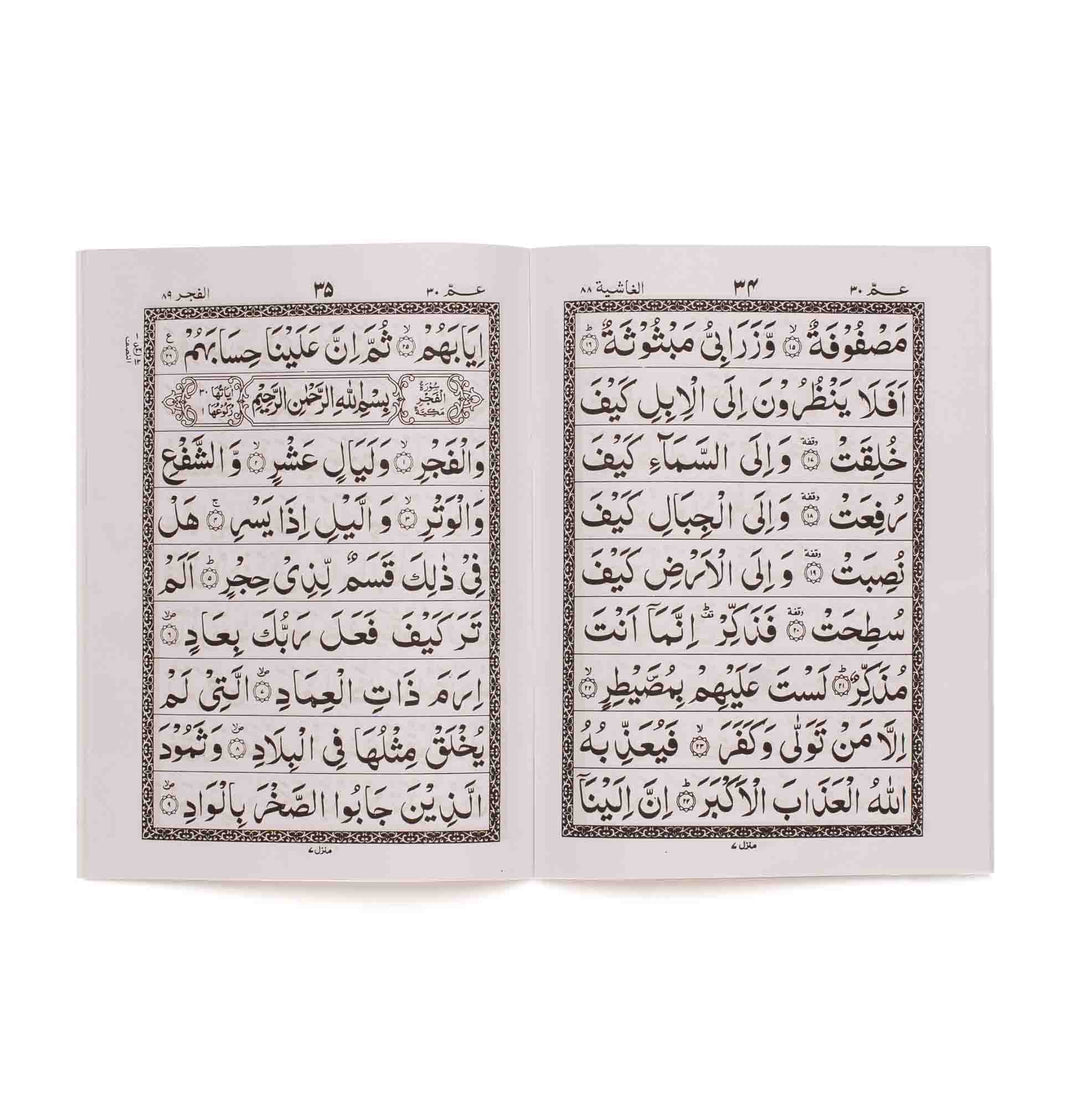 عمّ ٣٠ ٣٤ الغاشية ٨٨
مَصْفُوْفَةٌ ۙ﴿١٥﴾ وَّزَرَابِىُّ مَبْثُوْثَةٌ ؕ﴿١٦﴾
اَفَلَا يَنْظُرُوْنَ اِلَى الْاِبِلِ كَيْفَ
خُلِقَتْ وقفة ﴿١٧﴾ وَاِلَى السَّمَآءِ كَيْفَ
رُفِعَتْ وقفة ﴿١٨﴾ وَاِلَى الْجِبَالِ كَيْفَ
نُصِبَتْ وقفة ﴿١٩﴾ وَاِلَى الْاَرْضِ كَيْفَ
سُطِحَتْ وقفة ﴿٢٠﴾ فَذَكِّرْ قف اِنَّمَآ اَنْتَ
مُذَكِّرٌ ؕ﴿٢١﴾ لَسْتَ عَلَيْهِمْ بِمُصَۜيْطِرٍ ۙ﴿٢٢﴾
اِلَّا مَنْ تَوَلّٰى وَكَفَرَ ۙ﴿٢٣﴾ فَيُعَذِّبُهُ
اللّٰهُ الْعَذَابَ الْاَكْبَرَ ؕ﴿٢٤﴾ اِنَّ اِلَيْنَاۤ
منزل ٧
عمّ ٣٠ ٣٥ الفجر ٨٩
اِيَابَهُمْ ۙ﴿٢٥﴾ ثُمَّ اِنَّ عَلَيْنَا حِسَابَهُمْ ﴿٢٦﴾ ع
سُوْرَةُ الْفَجْرِ مَكِّيَّةٌ بِسْمِ اللّٰهِ الرَّحْمٰنِ الرَّحِيْمِ اٰيَاتُهَا ٣٠ رُكُوْعُهَا ١
وَالْفَجْرِ ۙ﴿١﴾ وَلَيَالٍ عَشْرٍ ۙ﴿٢﴾ وَّالشَّفْعِ
وَالْوَتْرِ ۙ﴿٣﴾ وَالَّيْلِ اِذَا يَسْرِ ۚ﴿٤﴾ هَلْ
فِىْ ذٰلِكَ قَسَمٌ لِّذِىْ حِجْرٍ ؕ﴿٥﴾ اَلَمْ
تَرَ كَيْفَ فَعَلَ رَبُّكَ بِعَادٍ ۙ﴿٦﴾
اِرَمَ ذَاتِ الْعِمَادِ ۙ﴿٧﴾ الَّتِىْ لَمْ
يُخْلَقْ مِثْلُهَا فِى الْبِلَادِ ۙ﴿٨﴾ وَثَمُوْدَ
الَّذِيْنَ جَابُوا الصَّخْرَ بِالْوَادِ ۙ﴿٩﴾
منزل ٧